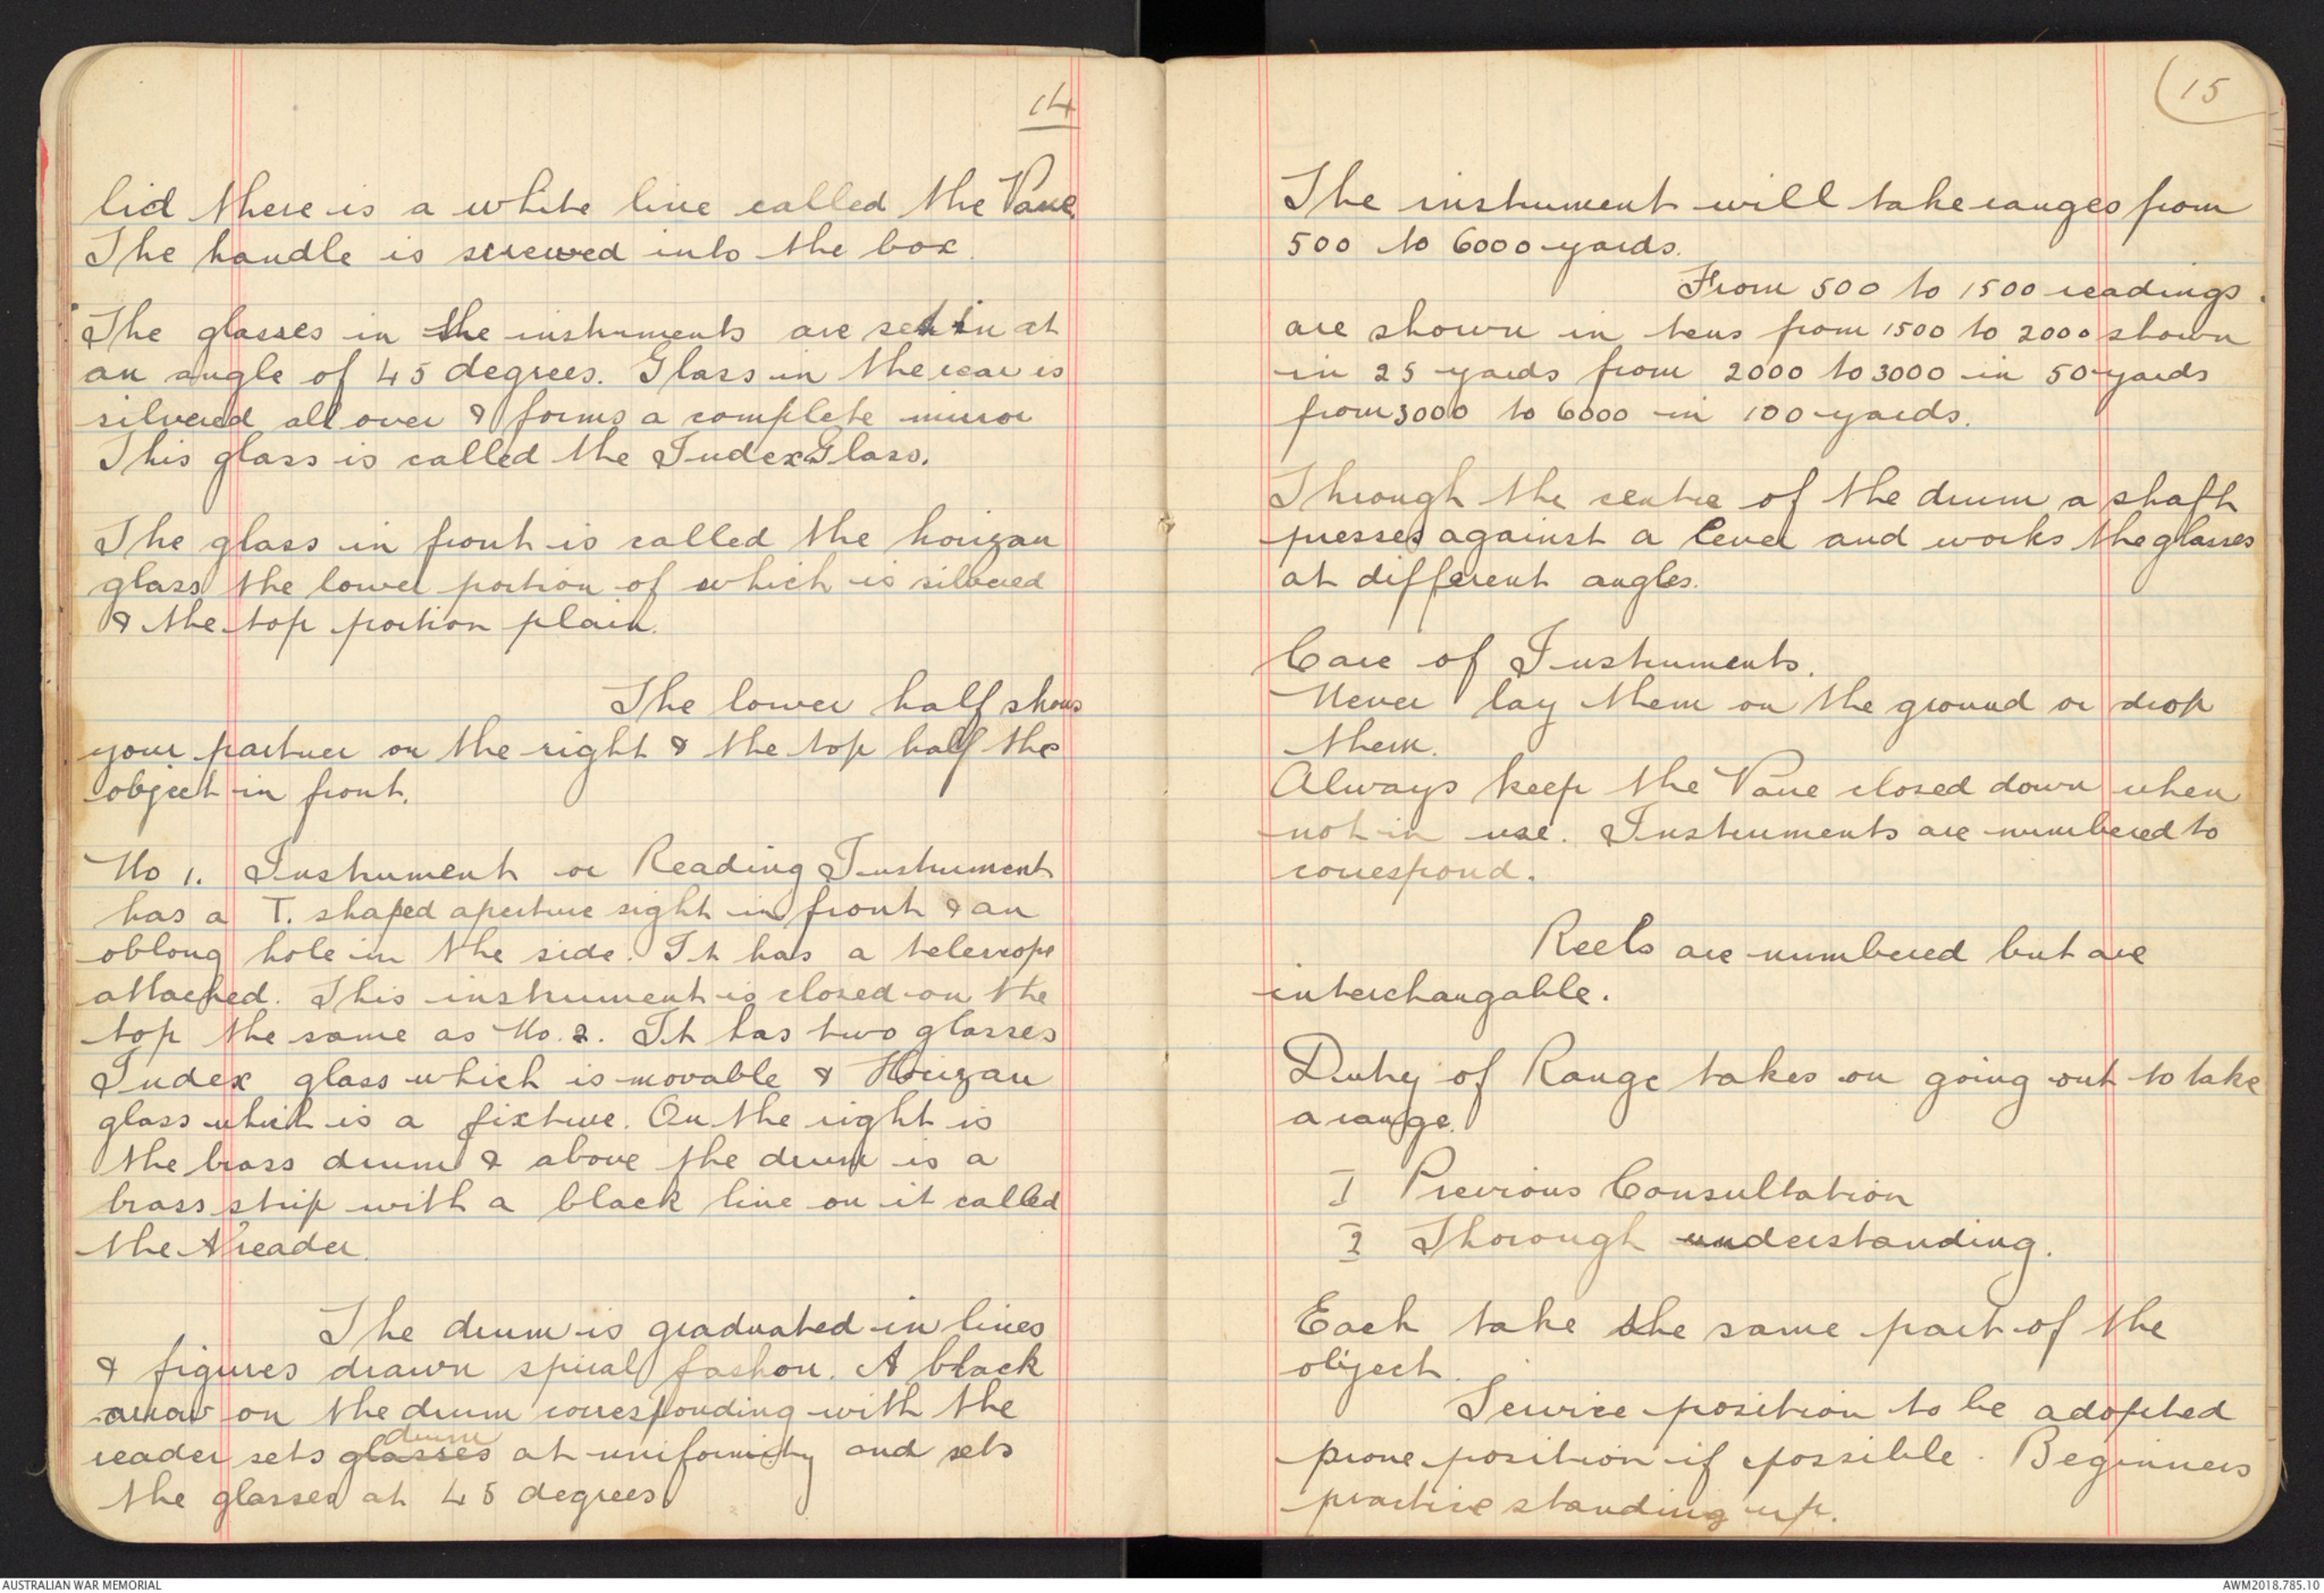 14
lid there is a white line called the Vane.
The handle is screwed into the box.
The glasses in the instruments are set in at
an angle of 45 degrees. Glass in the rear is
silvered all over & forms a complete mirror
This glass is called the Index Glass.
The glass in front is called the horizan
glass the lower portion of which is silvered
& the top portion plain.
The lower half shows
your partner on the right & the top half the
object in front.
No 1. Instrument or Reading Instrument
has a T. shaped aperture sight in front & an
oblong hole in the side. It has a telescope
attached. This instrument is closed on the
top the same as No. 2. It has two glasses
Index glass which is movable & Horizan
glass which is a fixture. On the right is
the brass drum & above the drum is a
brass strip with a black line on it called
the reader.
The drum is graduated in lines
& figures drawn spiral fashon. A black
arrow on the drum corresponding with the
drum
reader sets glasses at uniformity and sets
the glasses at 45 degrees
15
The instrument will take ranges from
500 to 6000 yards.
From 500 to 1500 readings.
are shown in tens from 1500 to 2000 shown
in 25 yards from 2000 to 3000 in 50 yards
from 3000 to 6000 in 100 yards.
Through the centre of the drum a shaft
presses against a lever and works the glasses
at different angles.
Care of Instruments.
Never lay them on the ground or drop
them.
Always keep the Vane closed down when
not in use. Instruments are numbered to
correspond.
Reels are numbered but are
interchangable.
Duty of Range takes on going out to take
a range.
I Previous Consultation
2 Thorough understanding.
Each take the same part of the
object.
Service position to be adopted
prone position if possible. Beginners
practice standing up.
AUSTRALIAN WAR MEMORIAL
AWM2018.785.10